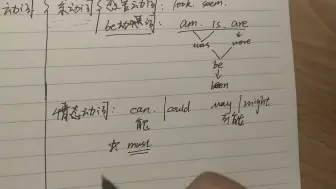 动词 系动词 感官动词: look. seem.
be动词: am. is. are
was were
be
been
情态动词: can. / could may / might
能 可能
☆ must